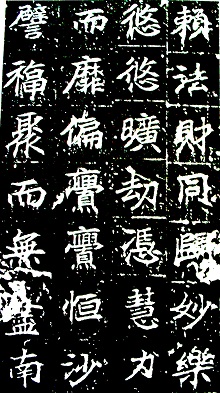 賴法財同興妙樂
悠悠曠劫憑慧力
而靡偏亹亹恒沙
譬福聚而無盡南